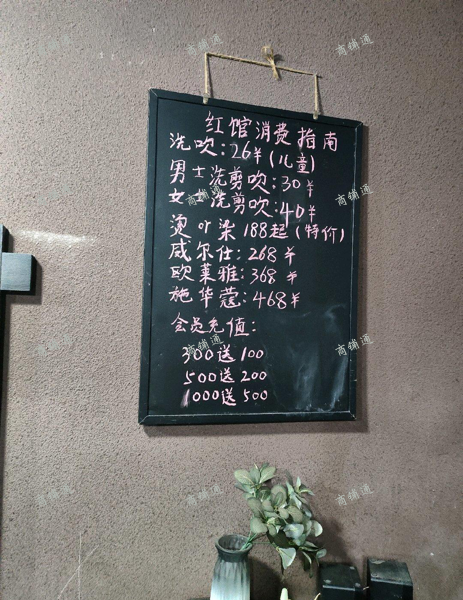 红馆消费指南
洗吹:26¥(儿童)
男士洗剪吹:30¥
女士洗剪吹:40¥
烫 or 染 188起(特价)
威尔仕:268¥
欧莱雅:368¥
施华蔻:468¥
会员充值:
300送100
500送200
1000送500
商铺通
商铺通
商铺通
商铺通
商铺通
商铺通
商铺通
商铺通
商铺通